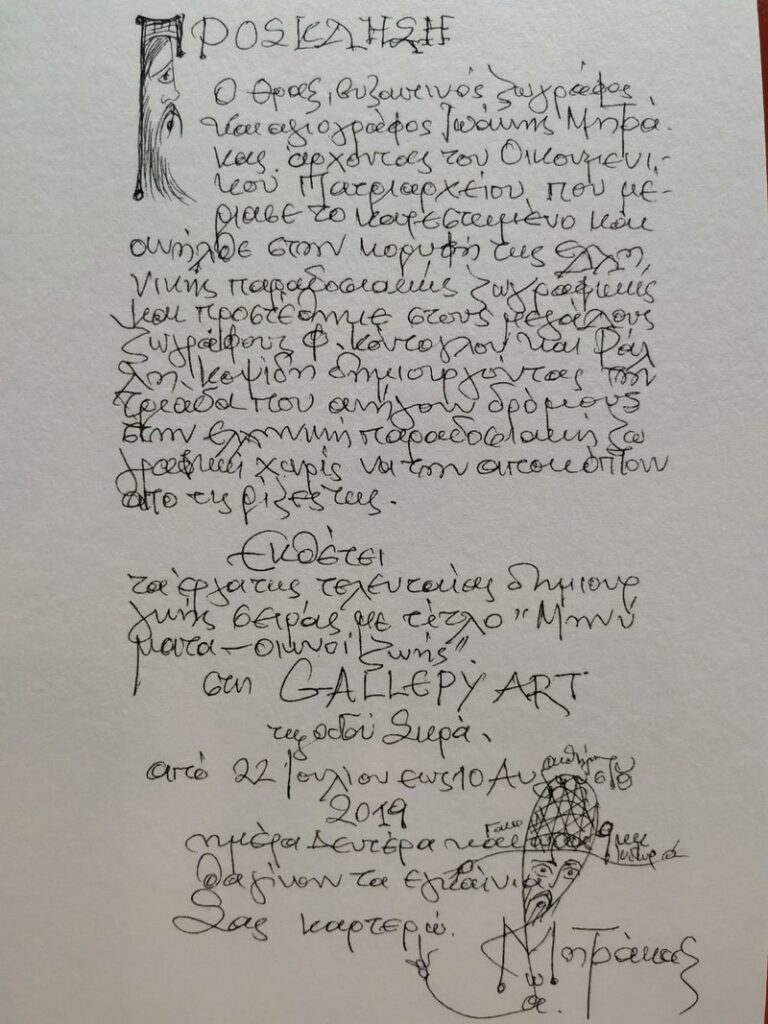 ΠΡΟΣΚΛΗΣΗ
Ο Θραξ, βυζαντινός ζωγράφος
και αγιογράφος Ιωάννης Μητρά-
κας άρχοντας του Οικουμενι-
κού Πατριαρχείου, που μέ-
ριασε το κατεστημένο και
ανήλθε στην κορυφή της ελλη
νικής παραδοσιακής ζωγραφικής
και προστέθηκε στους μεγάλους
ζωγράφους Φ. Κόντογλου και Ράλ
λη Κοψίδη δημιουργόντας την
τριάδα που ανήγον δρόμους
στην ελληνική παραδοσιακή ζω
γραφική χωρίς να την αποκόπτον
από τις ρίζες της.
Εκθέτει
τα έργα της τελευταίας δημιουρ
γικής σειράς με τίτλο "Μηνύ
ματα - οιωνοί ζωής".
στη GALLEPY ART
της οδού Σκρά.
από 22 Ιουλίου εως 10 Αυγούστου
2019
ημέρα Δευτέρα και ώρα 9
θα γίνουν τα εγκαίνια
Σας καρτερώ.
Μητράκας